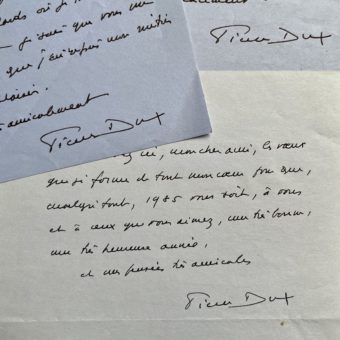 où je
je sais que vous me
que j'ai
amicalement
Pierre Dux
Pierre Dux
ici, mon cher ami, les vœux
que je forme de tout mon cœur pour que,
malgré tout, 1985 vous soit, à vous
et à ceux que vous aimez, une très bonne,
une très heureuse année,
et mes pensées très amicales
Pierre Dux